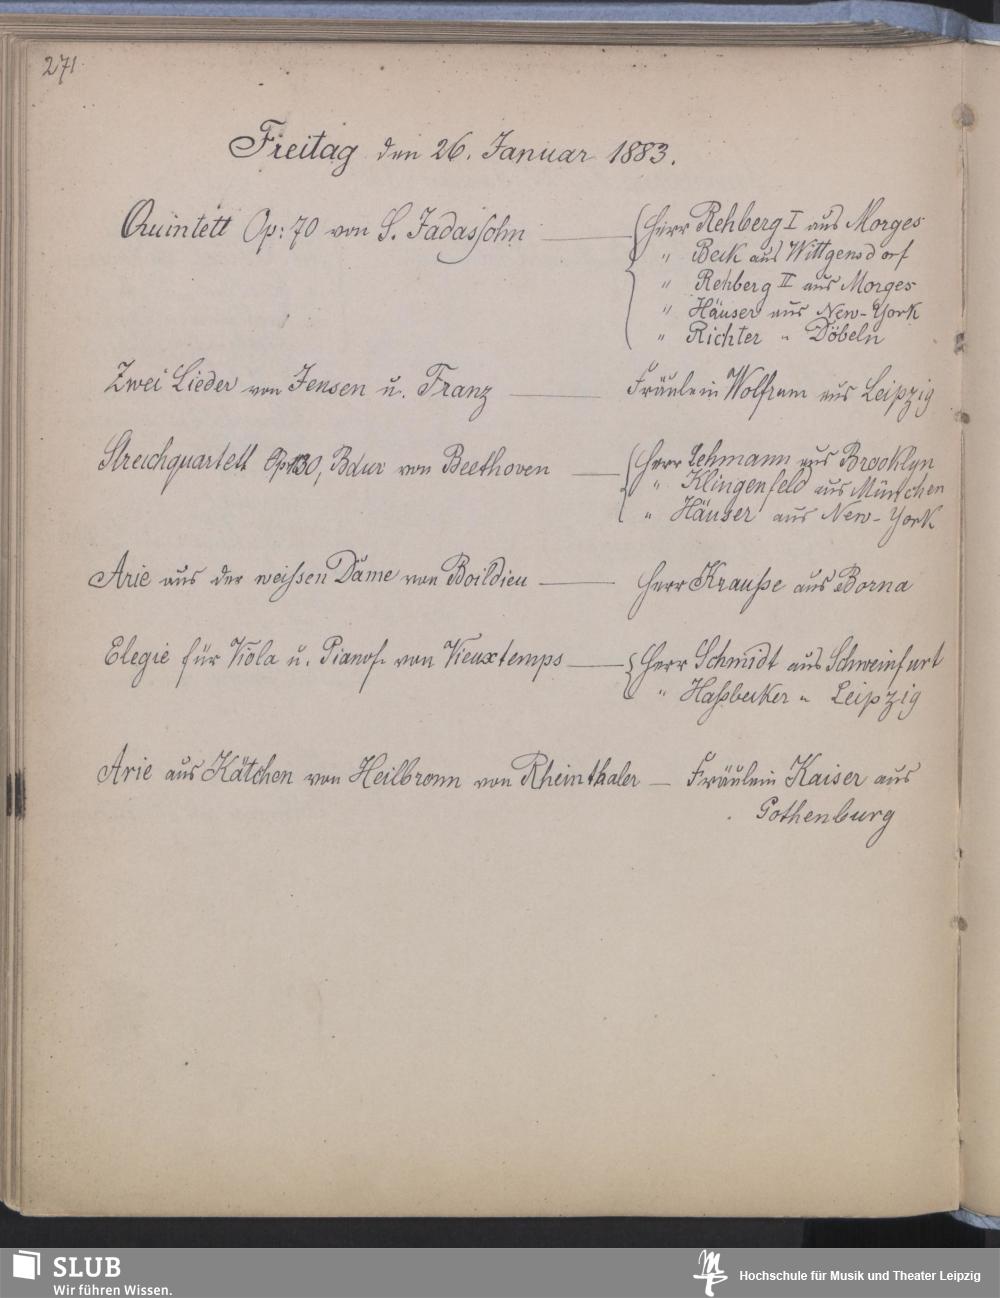 271
Freitag den 26. Januar 1883.
Quintett Op: 70 von S. Jadassohn — Herr Rehberg I aus Morges
" Beck aus Wittgensdorf
" Rehberg II aus Morges
" Häuser aus New-York
" Richter " Döbeln
Zwei Lieder von Jensen u. Franz — Fräulein Wolfram aus Leipzig
Streichquartett Op 130, Bdur von Beethoven — Herr Lehmann aus Brooklyn
" Klingenfeld aus München
" Häuser aus New-York
Arie aus der weißen Dame von Boildieu — Herr Krauße aus Borna
Elegie für Viola u. Pianof. von Vieuxtemps — Herr Schmidt aus Schweinfurt
" Haßbecker " Leipzig
Arie aus Kätchen von Heilbronn von Rheinthaler — Fräulein Kaiser aus
Gothenburg
SLUB
Wir führen Wissen.
Hochschule für Musik und Theater Leipzig